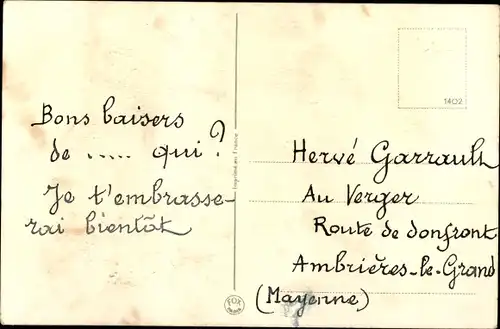 Bons baisers
de ..... qui ?
Je t'embrasse-
rai bientôt
Imprimé en France
1402
Hervé Garrault
Au Verger
Route de donfront
Ambrières-le-Grand
(Mayenne)
FOX